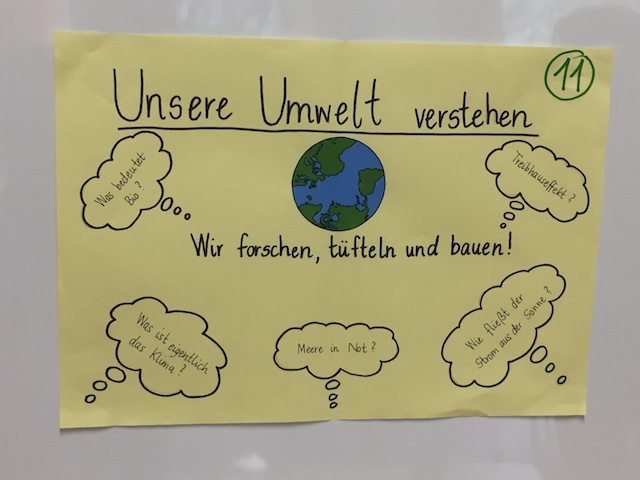 11
Unsere Umwelt verstehen
Was bedeutet
Bio?
Treibhauseffekt?
Wir forschen, tüfteln und bauen!
Was ist eigentlich
das Klima?
Meere in Not?
Wie fließt der
Strom aus der Sonne?